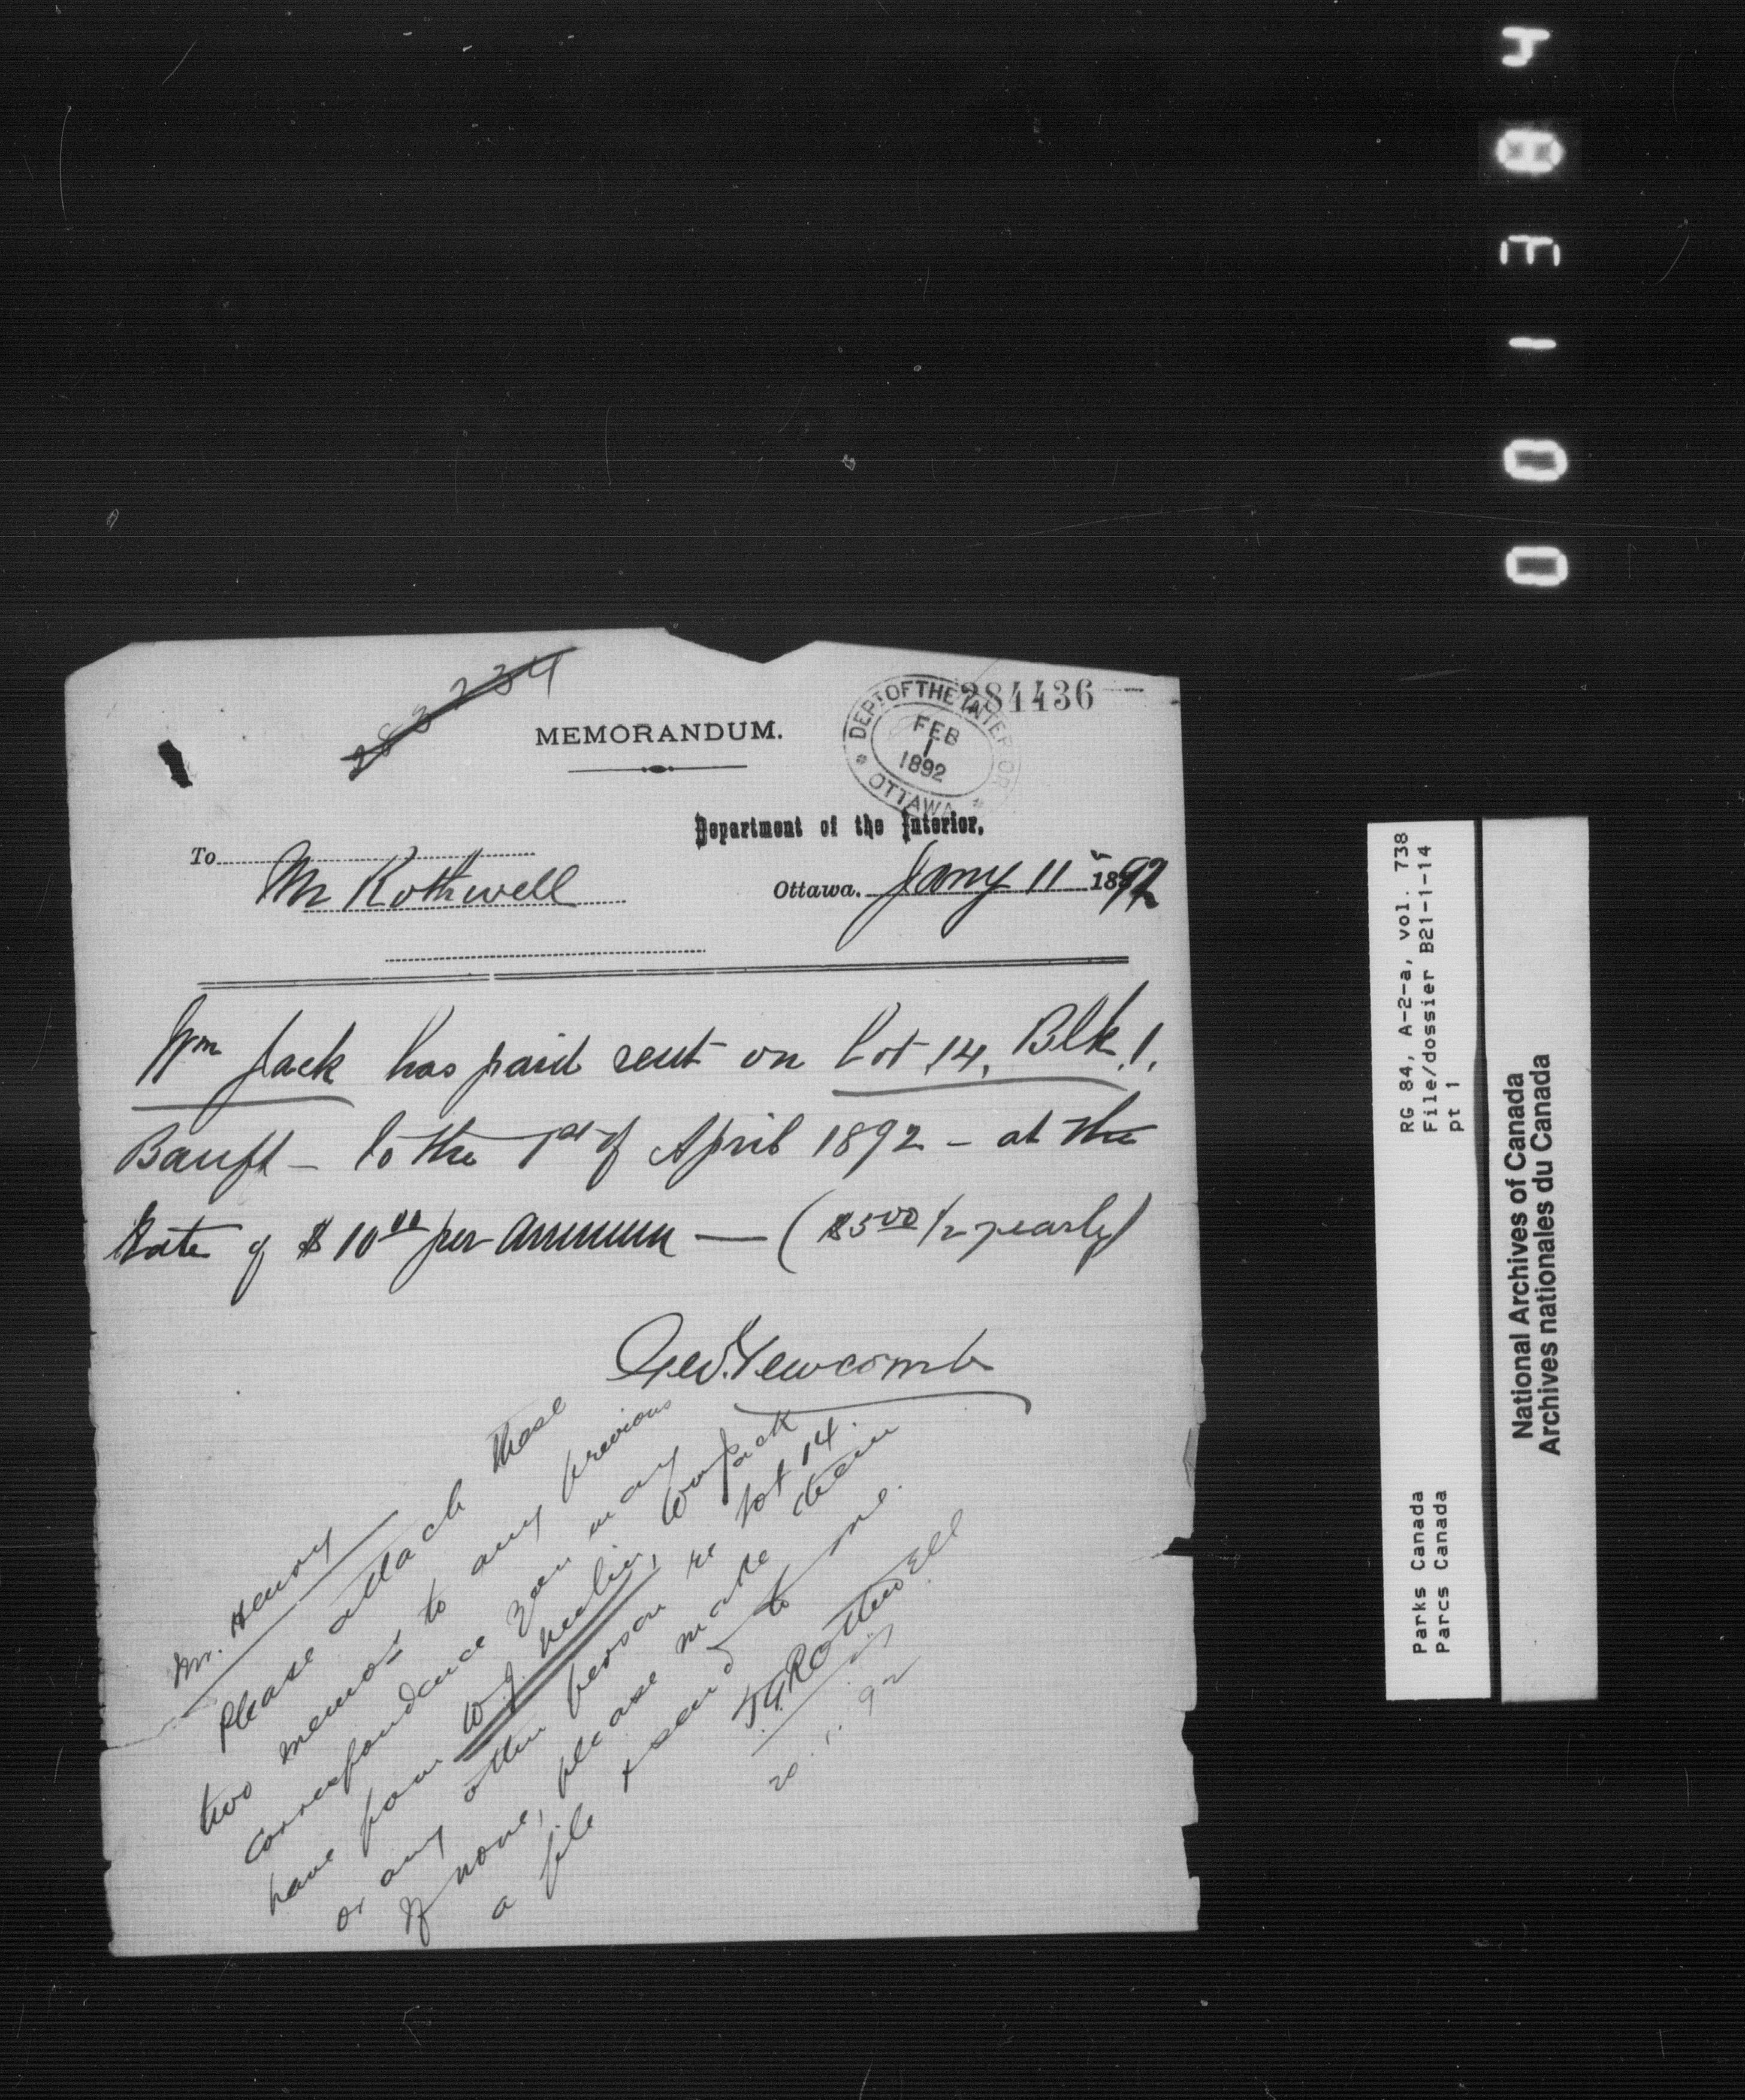 283234
284436
MEMORANDUM.
DEPT OF THE INTERIOR
FEB
1
1892
OTTAWA
Department of the Interior,
To Mr Rothwell
Ottawa, Jany 11 1892
Wm Jack has paid rent on Lot 14, Blk 1.
Banff – to the 1st of April 1892 – at the
Rate of $10 00 per annum — ($5 00 1/2 yearly)
Geo. Newcomb
Mr. Henry
Please attach these
two memos to any previous
correspondence you may
have from W.J. , Wm Jack
or any other person re lot 14.
If none, please make them
a file & send to me.
T.G. Rothwell
20.1.92
RG 84, A-2-a, vol. 738
File/dossier B21-1-14
pt 1
Parks Canada
Parcs Canada
National Archives of Canada
Archives nationales du Canada
0 0 1 3 0 4